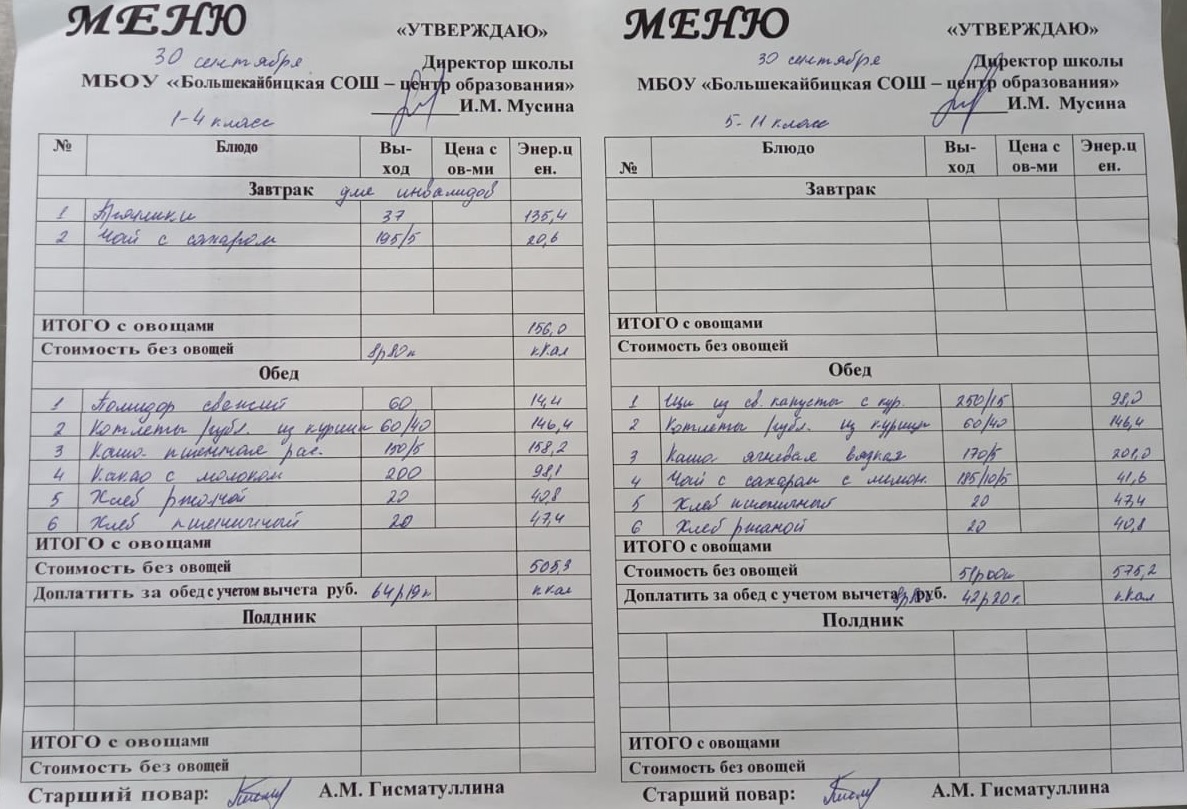 МЕНЮ
«УТВЕРЖДАЮ»
30 сентября
Директор школы
МБОУ «Большекайбицкая СОШ – центр образования»
И.М. Мусина
1-4 класс
№ Блюдо Вы-ход Цена с ов-ми Энер.ц ен.
Завтрак для инвалидов
1 Пряники 37 135,4
2 Чай с сахаром 195/5 20,6
ИТОГО с овощами 156,0
Стоимость без овощей 8р80к ккал
Обед
1 Помидор свежий 60 14,4
2 Котлеты рубл. из курицы 60/40 146,4
3 Каша пшенная рас. 150/5 158,2
4 Какао с молоком 200 98,1
5 Хлеб ржаной 20 40,8
6 Хлеб пшеничный 20 47,4
ИТОГО с овощами
Стоимость без овощей 505,3
Доплатить за обед с учетом вычета руб. 64р19к ккал
Полдник
ИТОГО с овощами
Стоимость без овощей
Старший повар: А.М. Гисматуллина
МЕНЮ
«УТВЕРЖДАЮ»
30 сентября
Директор школы
МБОУ «Большекайбицкая СОШ – центр образования»
И.М. Мусина
5-11 класс
№ Блюдо Вы-ход Цена с ов-ми Энер.ц ен.
Завтрак
ИТОГО с овощами
Стоимость без овощей
Обед
1 Щи из св. капусты с кур. 250/15 98,0
2 Котлеты рубл. из курицы 60/40 146,4
3 Каша ячневая вязкая 170/5 201,0
4 Чай с сахаром с лимон. 185/10/5 41,6
5 Хлеб пшеничный 20 47,4
6 Хлеб ржаной 20 40,8
ИТОГО с овощами
Стоимость без овощей 51р00к 575,2
Доплатить за обед с учетом вычета руб. 42р20к ккал
Полдник
ИТОГО с овощами
Стоимость без овощей
Старший повар: А.М. Гисматуллина